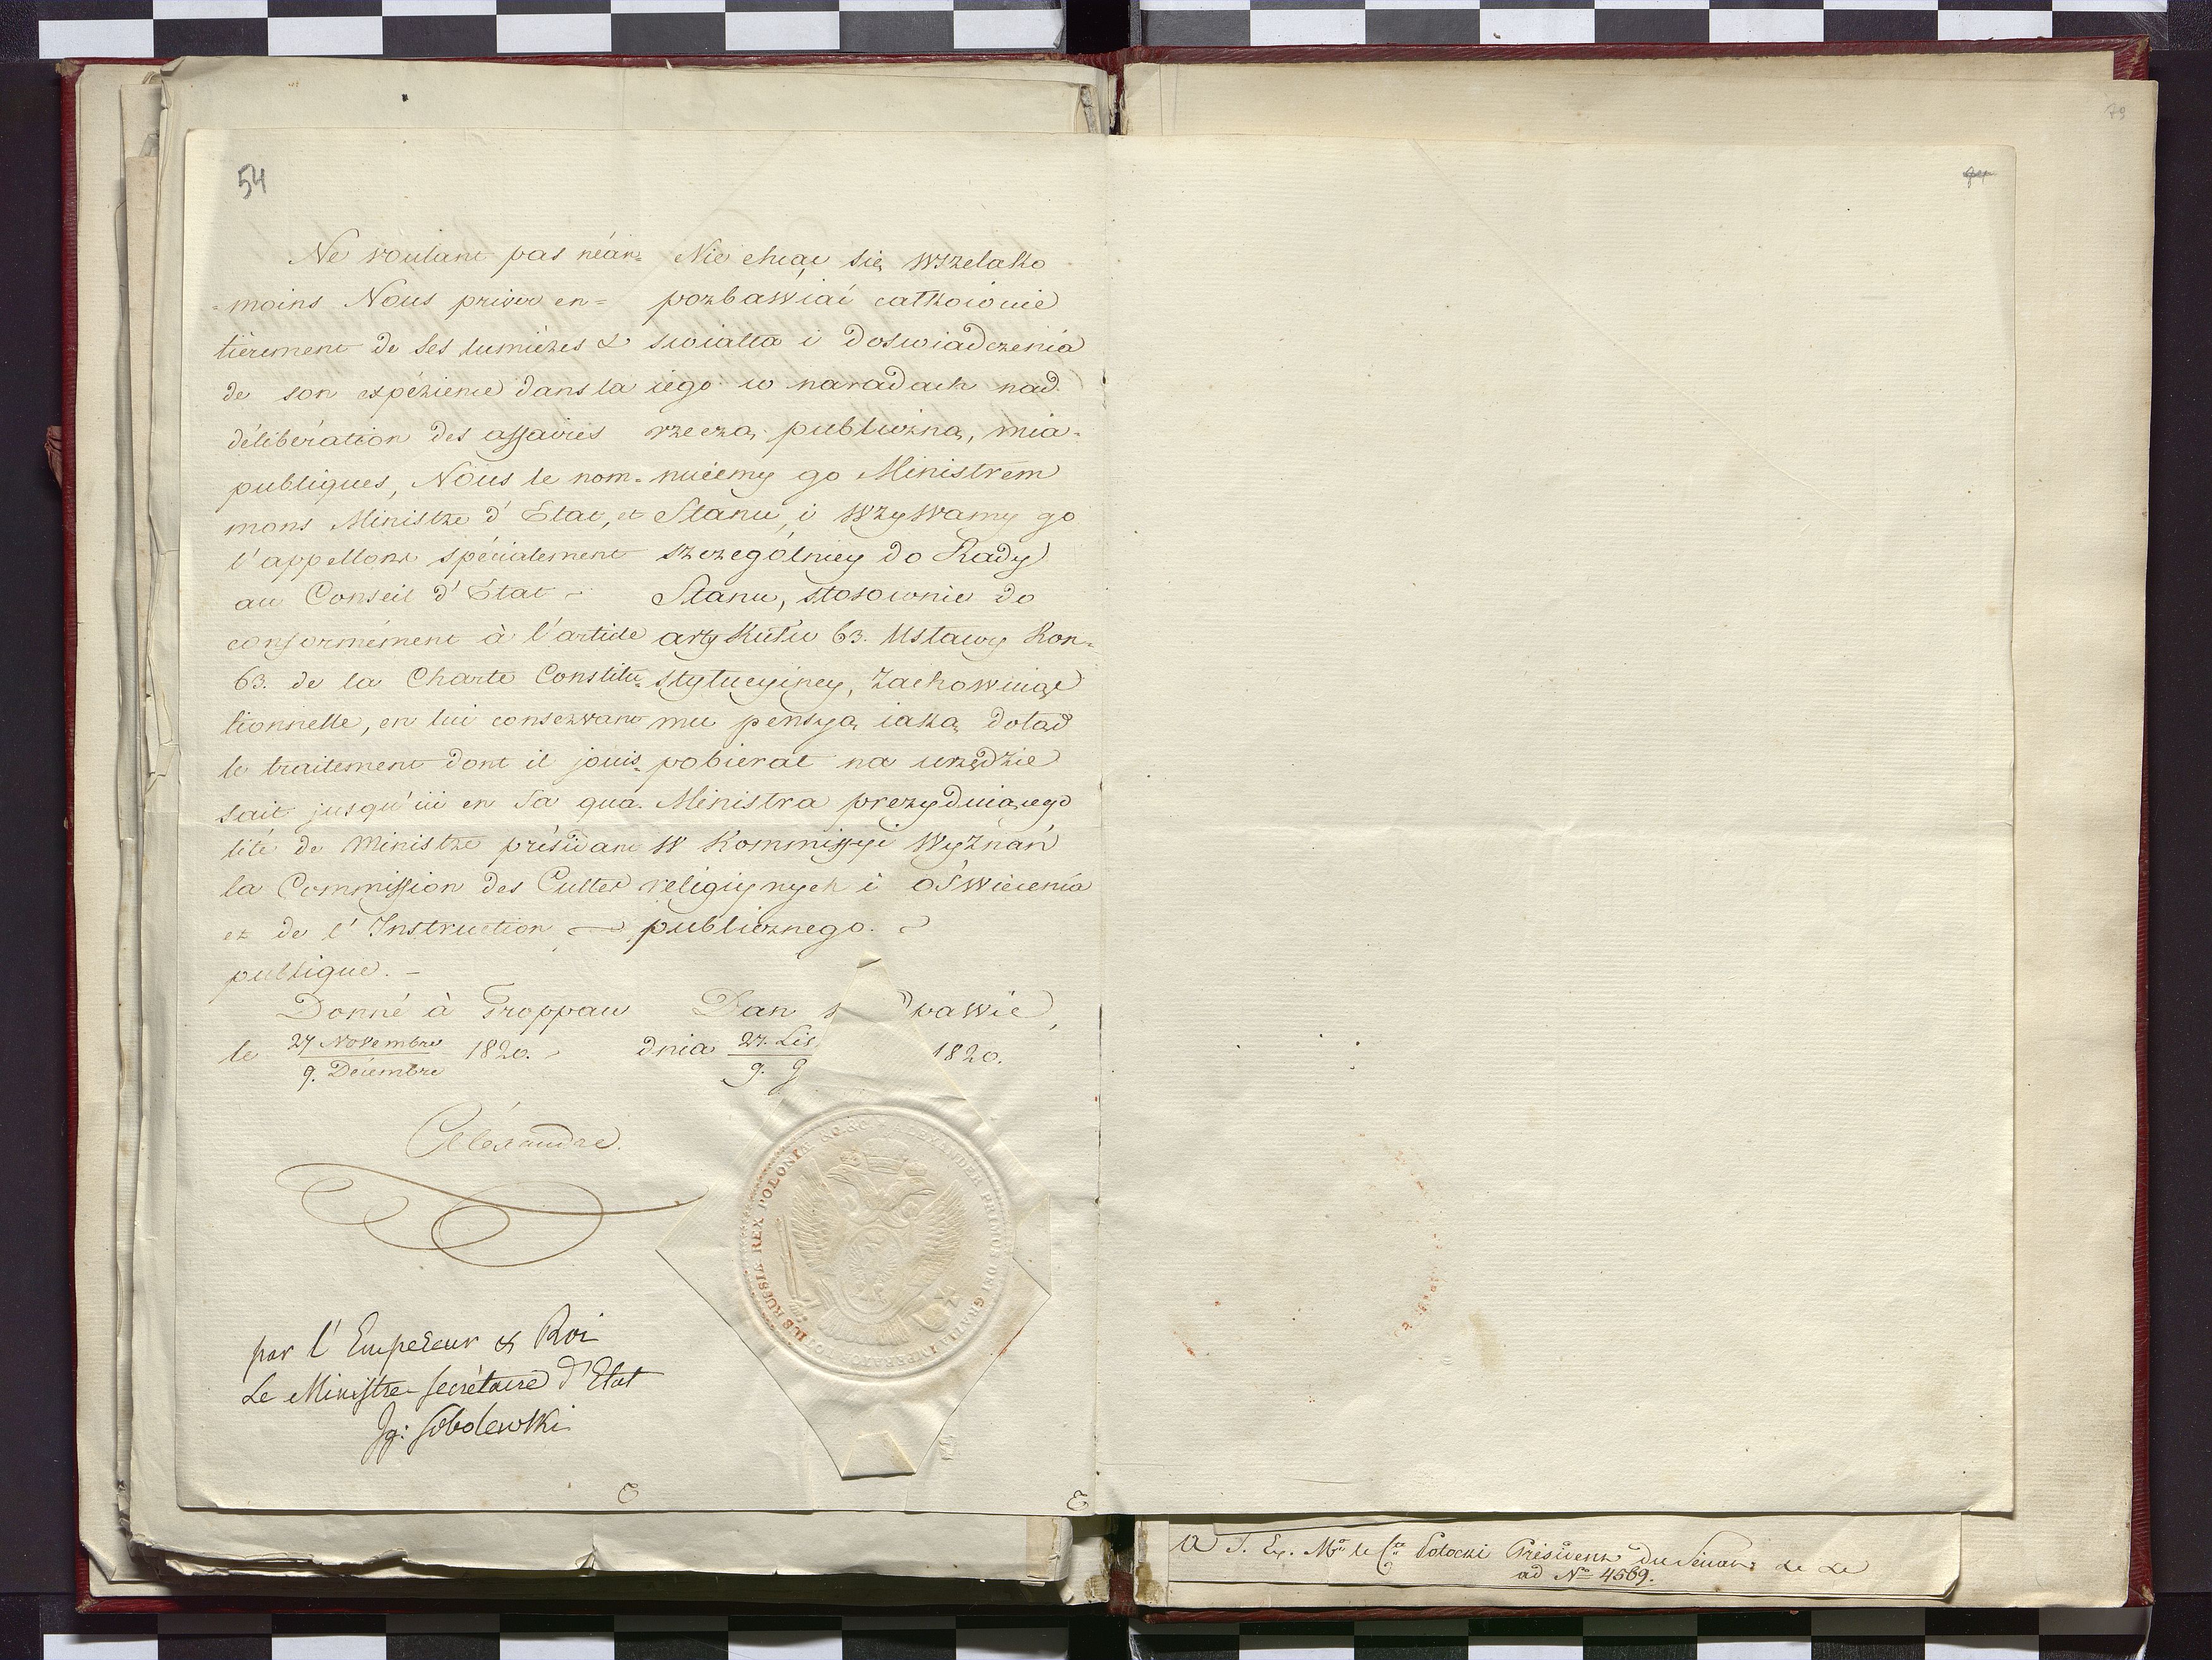 54
Ne voulant pas néan=
=moins Nous priver en=
tièrement de ses lumières &
de son expérience dans la
délibération des affaires
publiques, Nous le nom=
mons Ministre d'Etat, et
l'appellons spécialement
au Conseil d'Etat
conformément à l'article
63. de la Charte Constitu=
tionnelle, en lui conservant
le traitement dont il jouis=
sait jusqu'ici en sa qua=
lité de Ministre présidant
la Commission des Cultes
et de l'Instruction
publique. —
Donné à Troppau
le 27 Novembre / 9. Décembre 1820.
Nie chcąc się wszelako
pozbawiać całkowicie
swiatła i doswiadczenia
iego w naradach nad
rzeczą publiczną, mia=
nuiemy go Ministrem
Stanu, i wzywamy go
szczególniey do Rady
Stanu, stosownie do
artykułu 63. Ustawy Kon=
stytucyiney, zachowuiąc
mu pensyą iaką dotąd
pobierał na urzędzie
Ministra prezyduiącego
w Kommissyi Wyznań
religiynych i oświecenia
publicznego.
Dan pawie,
dnia 27. Lis / 9. G 1820.
Alexandre.
ALEXANDER PRIMUS DEI GRATIA IMPERATOR TOTIUS RUSSIÆ REX POLONIÆ
par l'Empereur & Roi
Le Ministre Secrétaire d'Etat
Ig: Sobolewski
79
A S. Ex. Mr le Cte Potocki Président du Sénat &c &c
ad No 4569.